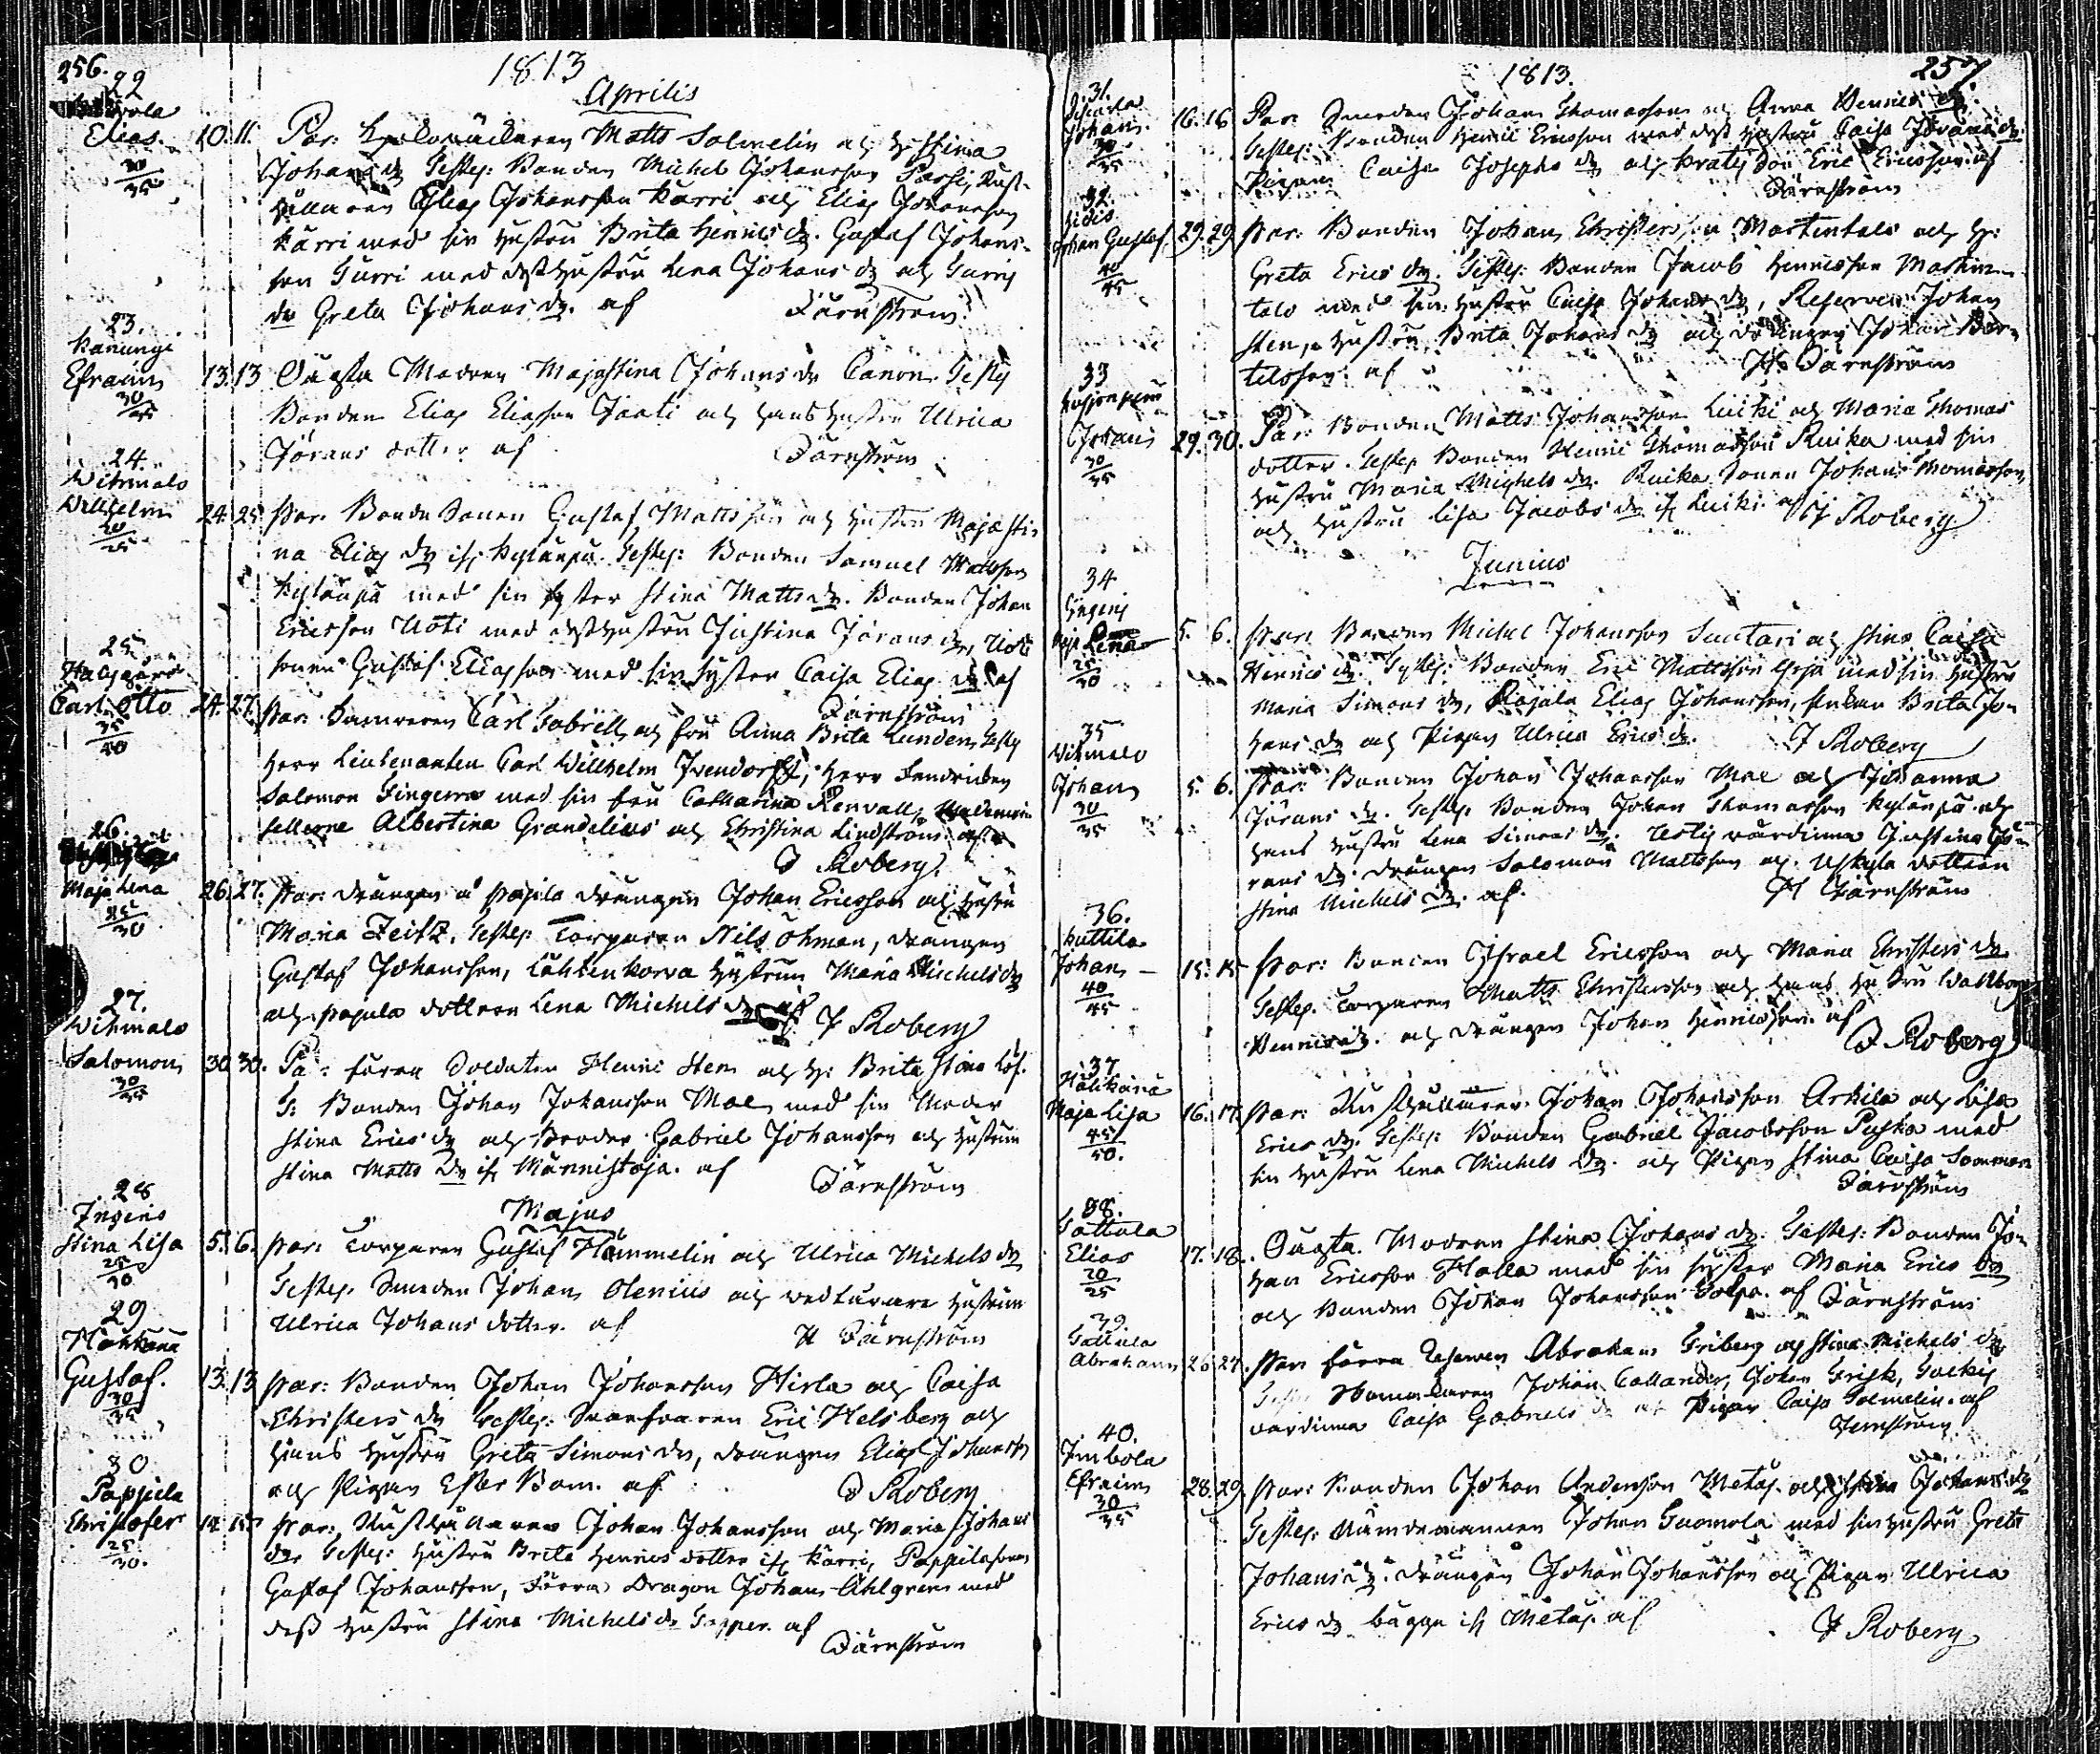 256.
1813
Aprilis
22
Elias. 10. 11. Par: Matts Solmelin och H: Stina
30/35
Johans dr Testes: Bonden Michel Johansson Passi, Rust-
hållaren Elias Johansson Kärri och Elias Johansson
Kärri med sin hustru Brita Henrics dr. Gustaf Johans-
son Turri med dess hustru Lena Johans dr och
Greta Johans dr. af Färnström
23.
Kanungi
Efraim 13. 13 Ougta Modren Maja Stina Johans dr Canon. Testes
30/35
Bonden Elias Eliasson Jaati och hans hustru Ulrica
Jörans dotter af Färnström
24.
Wihmalo
Willhelm 24. 25 Par: Bonde Sonen Gustaf Mattsson och hustru Maja Sti-
20/25
na Elias dr ifr Kylänpä. Testes: Bonden Samuel Mattsson
Kylänpä med sin syster Stina Matts dr. Bonden Johan
Ericsson Uoti med dess hustru Justina Jörans dr, Uoti
sonen Gustaf Eliasson med sin syster Caisa Elias dr af
Färnström
25.
Carl Otto 24. 27. Par: Carl Gabriell och fru Anna Brita Lunden, Testes
35/40
Herr Lieutenanten Carl Willhelm Ivendorff, Herr Fendricken
Salomon med sin fru Catharina Renvall, Mademoi-
sellerne Albertina Grandelius och Christina Lindström af
J Roberg
26.
Maja Lena 26. 27. Par: drängen å Papila drängen Johan Ericsson och hustru
25/30
Maria Zeitz. Testes: Torparen Nils Öhman, drängen
Gustaf Johansson, Lähtenkorva hustrun Maria Michels dr
och Papula dottren Lena Michels dr af J Roberg
27.
Wihmalo
Salomon 30. 30. Par: förra Soldaten Henric Sten och H: Brita Stina Löf.
30/35
T: Bonden Johan Johansson Mae med sin Moder
Stina Erics dr och Broder Gabriel Johansson och hustrun
Stina Matts dr ifr Männistöja. af Färnström
Majus
28
Ingeris
Stina Lisa 5. 6. Par: Torparen Gustaf Hämmelin och Ulrica Michels dr
25/30
Testes. Smeden Johan Olenius och hustrun
Ulrica Johans dotter. af H Färnström
29
Gustaf. 13. 13 Par: Bonden Johan Johansson Hirla och Caisa
30/35
Christers dr Testes: Eric Helsberg och
hans hustru Greta Simons dr, drängen Elias Johansson
och Pigan Ester Bom. af J Roberg
30
Pappila
Christofer 14. 15 Par: Rusthållaren Johan Johansson och Maria Johans
25/30.
dr. Testes: hustru Brita Henrics dotter ifr Kärri, Pappila sonen
Gustaf Johansson, förra Dragon Johan Ahlgren med
dess hustru Stina Michels dr af
Färnström
1813.
257
31.
Johan. 16. 16 Par: Smeden Johan Thomasson och Anna Henrics dr.
30/35
Testes: Bonden Henric Ericsson med dess hustru Caisa Jörans dr
Pigan Caisa Josephs dr och Eric Ericsson af
Färnström
32.
Johan Gustaf 29. 29 Par: Bonden Johan Christersson Martintalo och H:
40/45
Greta Erics dr. Testes: Bonden Jacob Henricsson Martin-
talo med sin hustru Caisa Johans dr, Reserven Johan
Sten, hustru Brita Johans dr och drängen Johan Ber-
telsson af H Färnström
33
Johan 29. 30. Par: Bonden Matts Johansson Luiki och Maria Thomas
30/35
dotter. Testes Bonden Henric Thomasson Ruika med sin
hustru Maria Michels dr. Ruika Sonen Johan Thomasson,
och hustru Lisa Jacobs dr ifr Luiki. af J Roberg
Junius
34
Lena 5. 6. Par: Bonden Michel Johansson Suutari och Stina Caisa
25/30
Henrics dr. Testes: Bonden Eric Mattsson med sin hustru
Maria Simons dr, Rajala Elias Johansson, Brita Jo-
hans dr och Pigan Ulrica Erics dr. J Roberg
35
Wihmalo
Johan 5. 6. Par: Bonden Johan Johansson Mae och Johanna
30/35
Jörans dr. Testes. Bonden Johan Thomasson Kylänpä och
hans hustru Lena Simons dr. värdinna Justina Jö-
rans dr. drängen Salomon Mattsson och Uskyla dottren
Stina Michels dr. af. H Färnström
36.
Huttila
Johan 15. 15 Par: Bonden Israel Ericsson och Maria Christers dr
40/45
Testes. Torparen Matts Christersson och hans hustru Wallborg
Henrics dr. och drängen Johan Henricsson. af
J Roberg
37.
Maja Lisa 16. 17. Par: Rusthållaren Johan Johansson Arkila och Lisa
45/50.
Erics dr. Testes: Bonden Gabriel Jacobsson Puska med
sin hustru Lena Michels dr. och Pigan Stina Caisa Sommar
Färnström
38.
Tattula
Elias 17. 18. Ougta Modren Stina Johans dr. Testes: Bonden Jo-
20/25
han Ericsson Halla med sin syster Maria Erics dr
och Bonden Johan Johansson Tolpo. af Färnström
39.
Tattula
Abraham 26. 27. Par: förra Reserven Abraham Friberg och Stina Michels dr
Johan Callander, Johan Frisk,
värdinna Caisa Gabriels dr och Pigan Caisa Solmelin. af
Färnström
40.
Imbola
Efraim 28. 29. Par: Bonden Johan Andersson Metas och Stina Johans dr
30/35
Testes: Nämndemannen Johan Tuomola med sin hustru Greta
Johans dr. drängen Johan Johansson och Pigan Ulrica
Erics dr bägge ifr Metas. af J Roberg